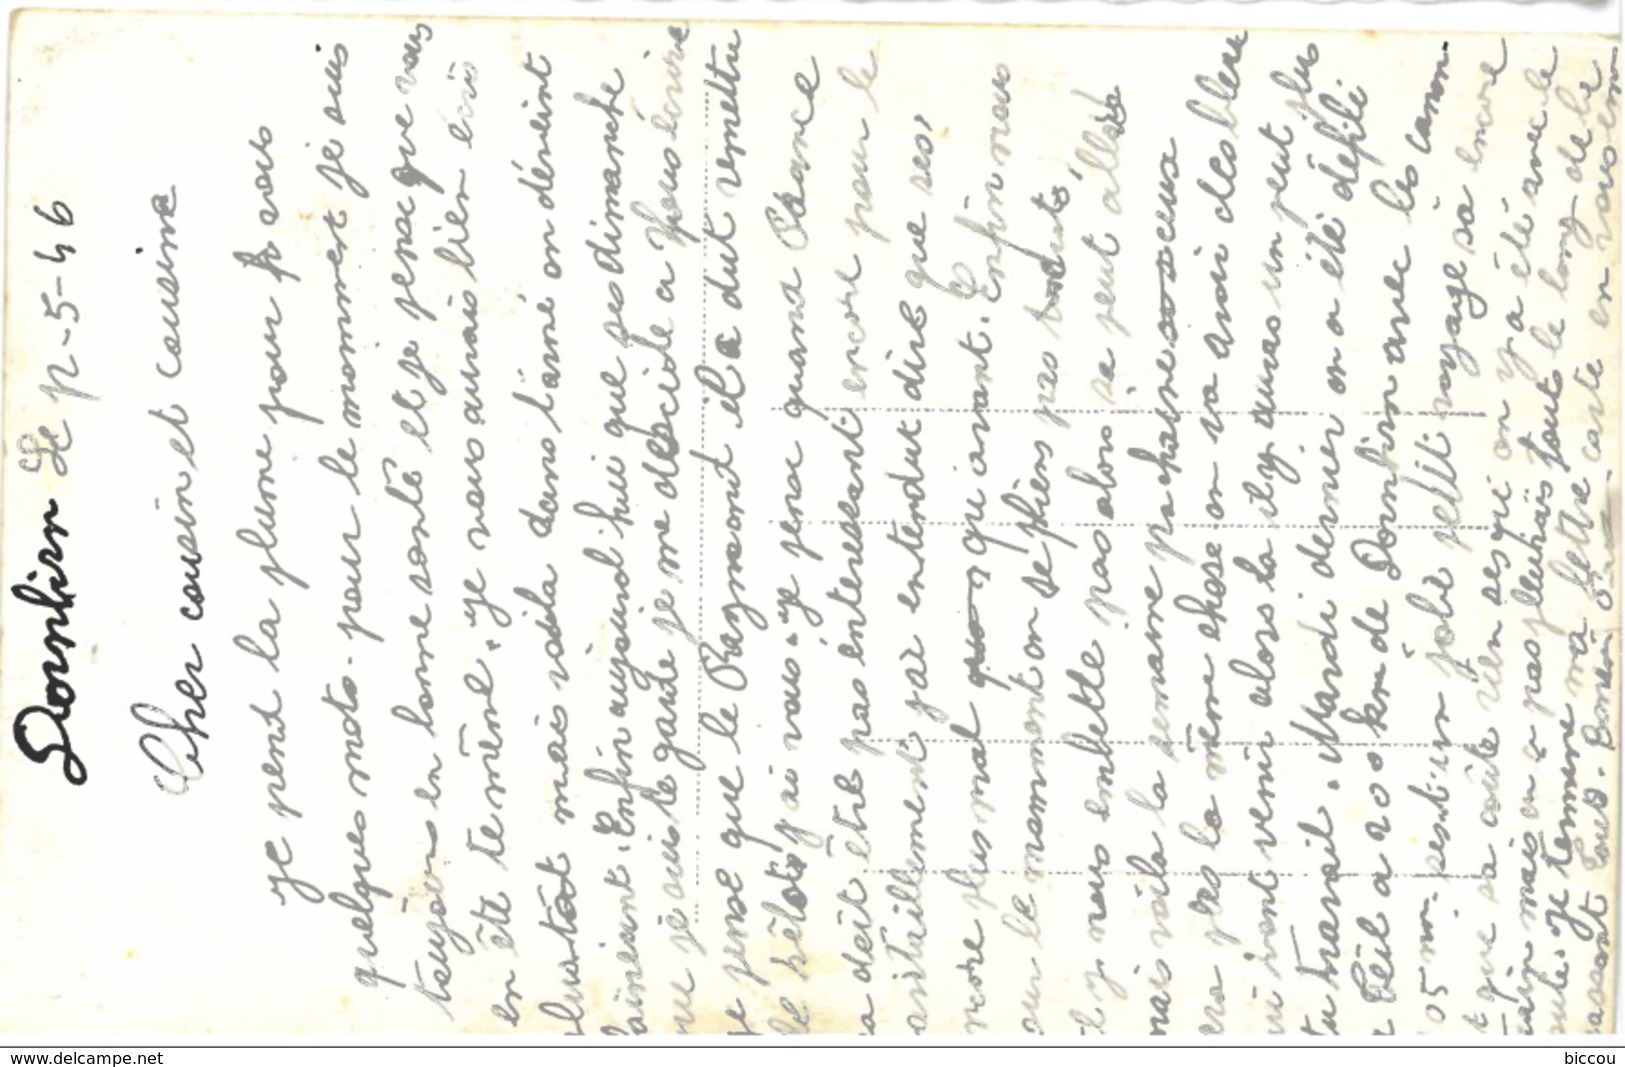 Dornbirn Le 12-5-46
Cher cousin et cousine
Je pent la plume pour vous
quelques mots. pour le moment je suis
toujours en bonne santé et je pense que vous
en ête te même. Je vous aurais bien écris
plutot mais voila dans l'armé on dévient
fainéant. Enfin aujourd'hui que ses dimanche
que je suis te garde je me décide a vous écrire
Je pense que le Raymond il a dut remettre
le vélo j'ai vais. Je pense quand Pérance
sa doit être pas interessant encore pour le
ravitaillement j'ai entendut dire que ses,
encore plus mal que avant. Enfin nous
pour le moment on se pliens pas tout,
Il y nous embette pas alors sa peut aller
mais voila la semaine prochaine
sera plus la même chose on va avoir des bleu
qui vont venir alors la il y auras un peut plus
tu travail. Mardi dernier on a été défilé
a Feil a 20 km de Dornbirn avec les canon
105 m. sest un jolie petit voyage sa encore
et que sa coûte rien ses qui on y a été avec le
train mais on a pas pleurais tout le long de la
route. Je termine ma lettre carte en vous em
brassant tous.
www.delcampe.net
biccou